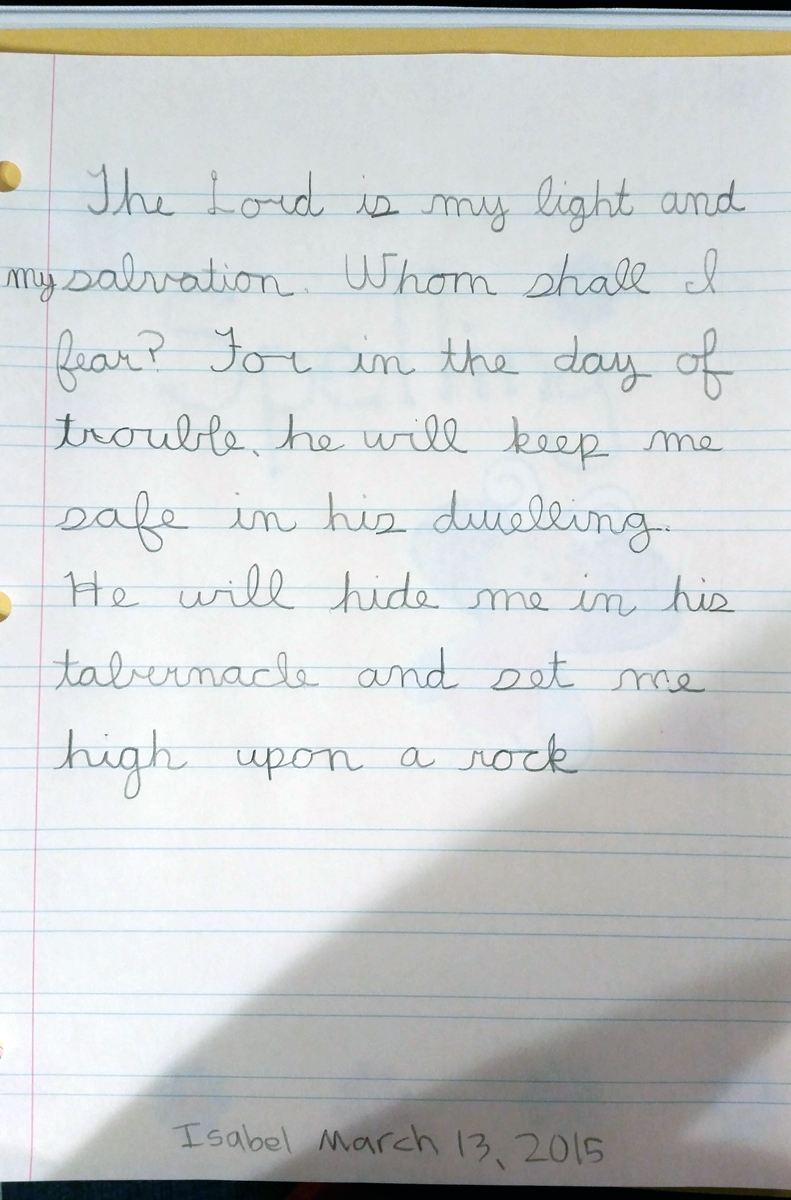 The Lord is my light and
my salvation. Whom shall I
fear? For in the day of
trouble, he will keep me
safe in his dwelling.
He will hide me in his
tabernacle and set me
high upon a rock
Isabel March 13, 2015